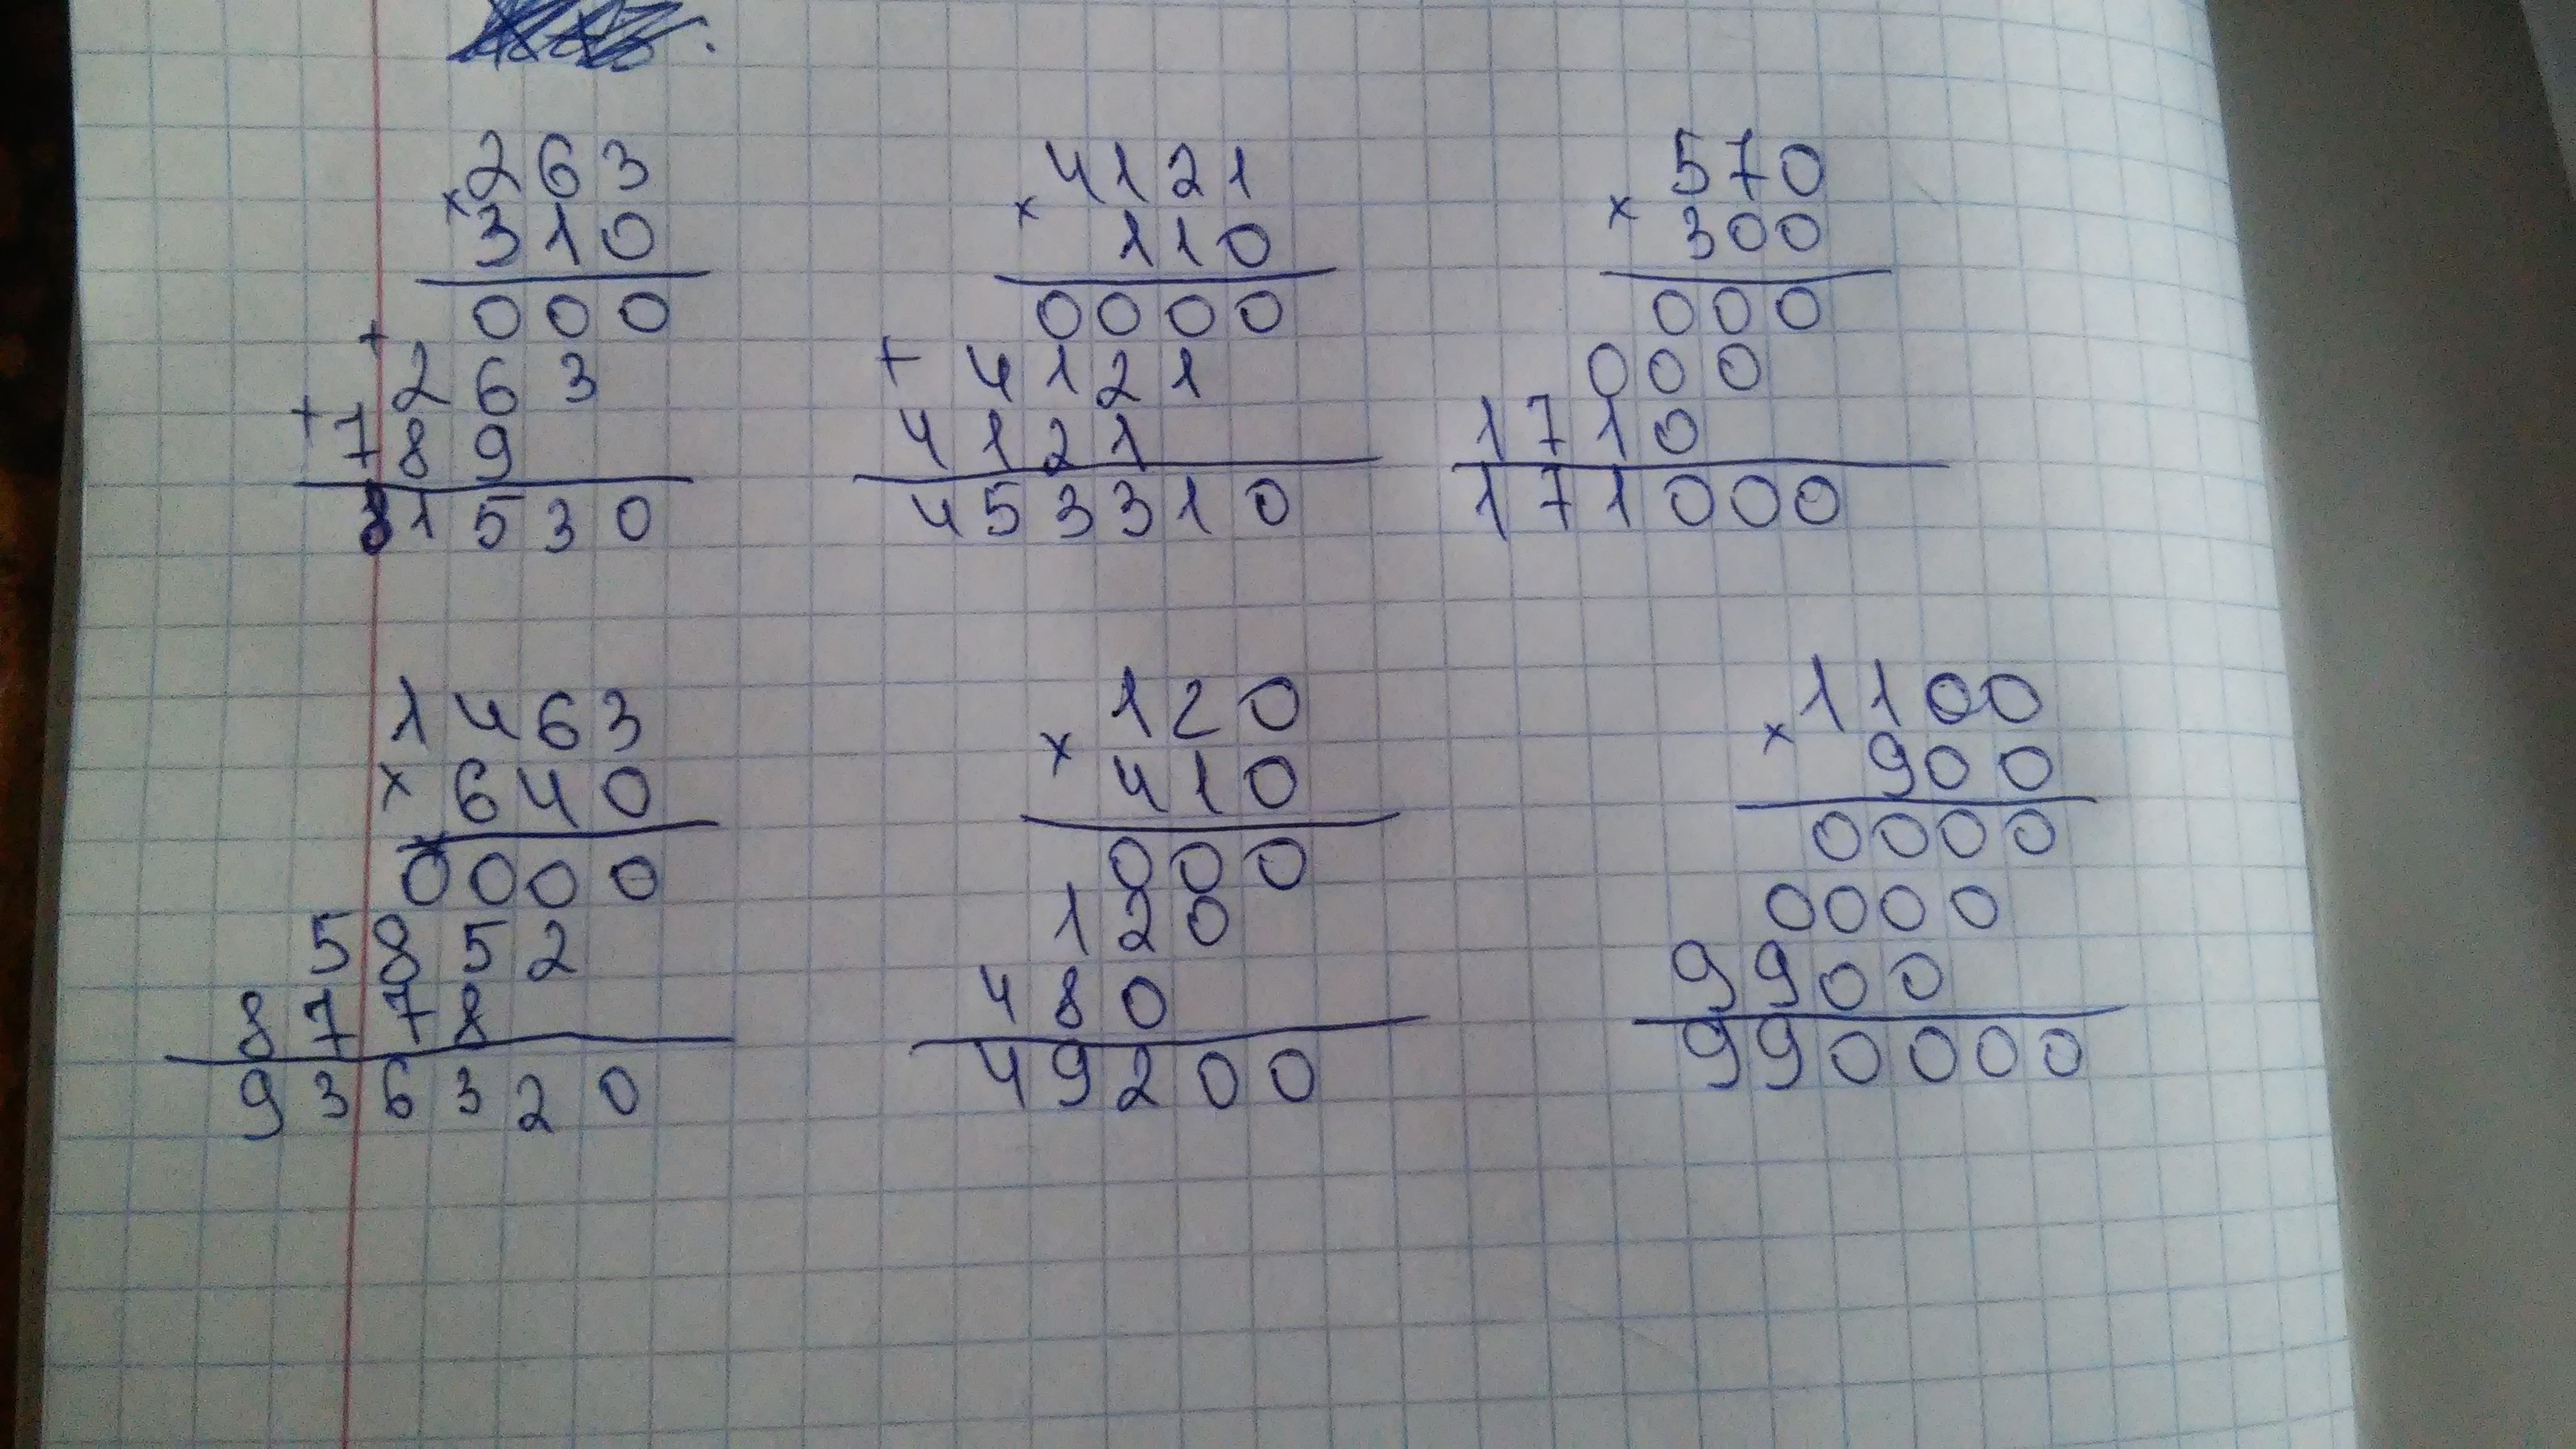 263
× 310
000
+ 263
+ 789
81530
4121
× 110
0000
+ 4121
4121
453310
570
× 300
000
000
1710
171000
1463
× 640
0000
5852
8778
936320
120
× 410
000
120
480
49200
1100
× 900
0000
0000
9900
990000